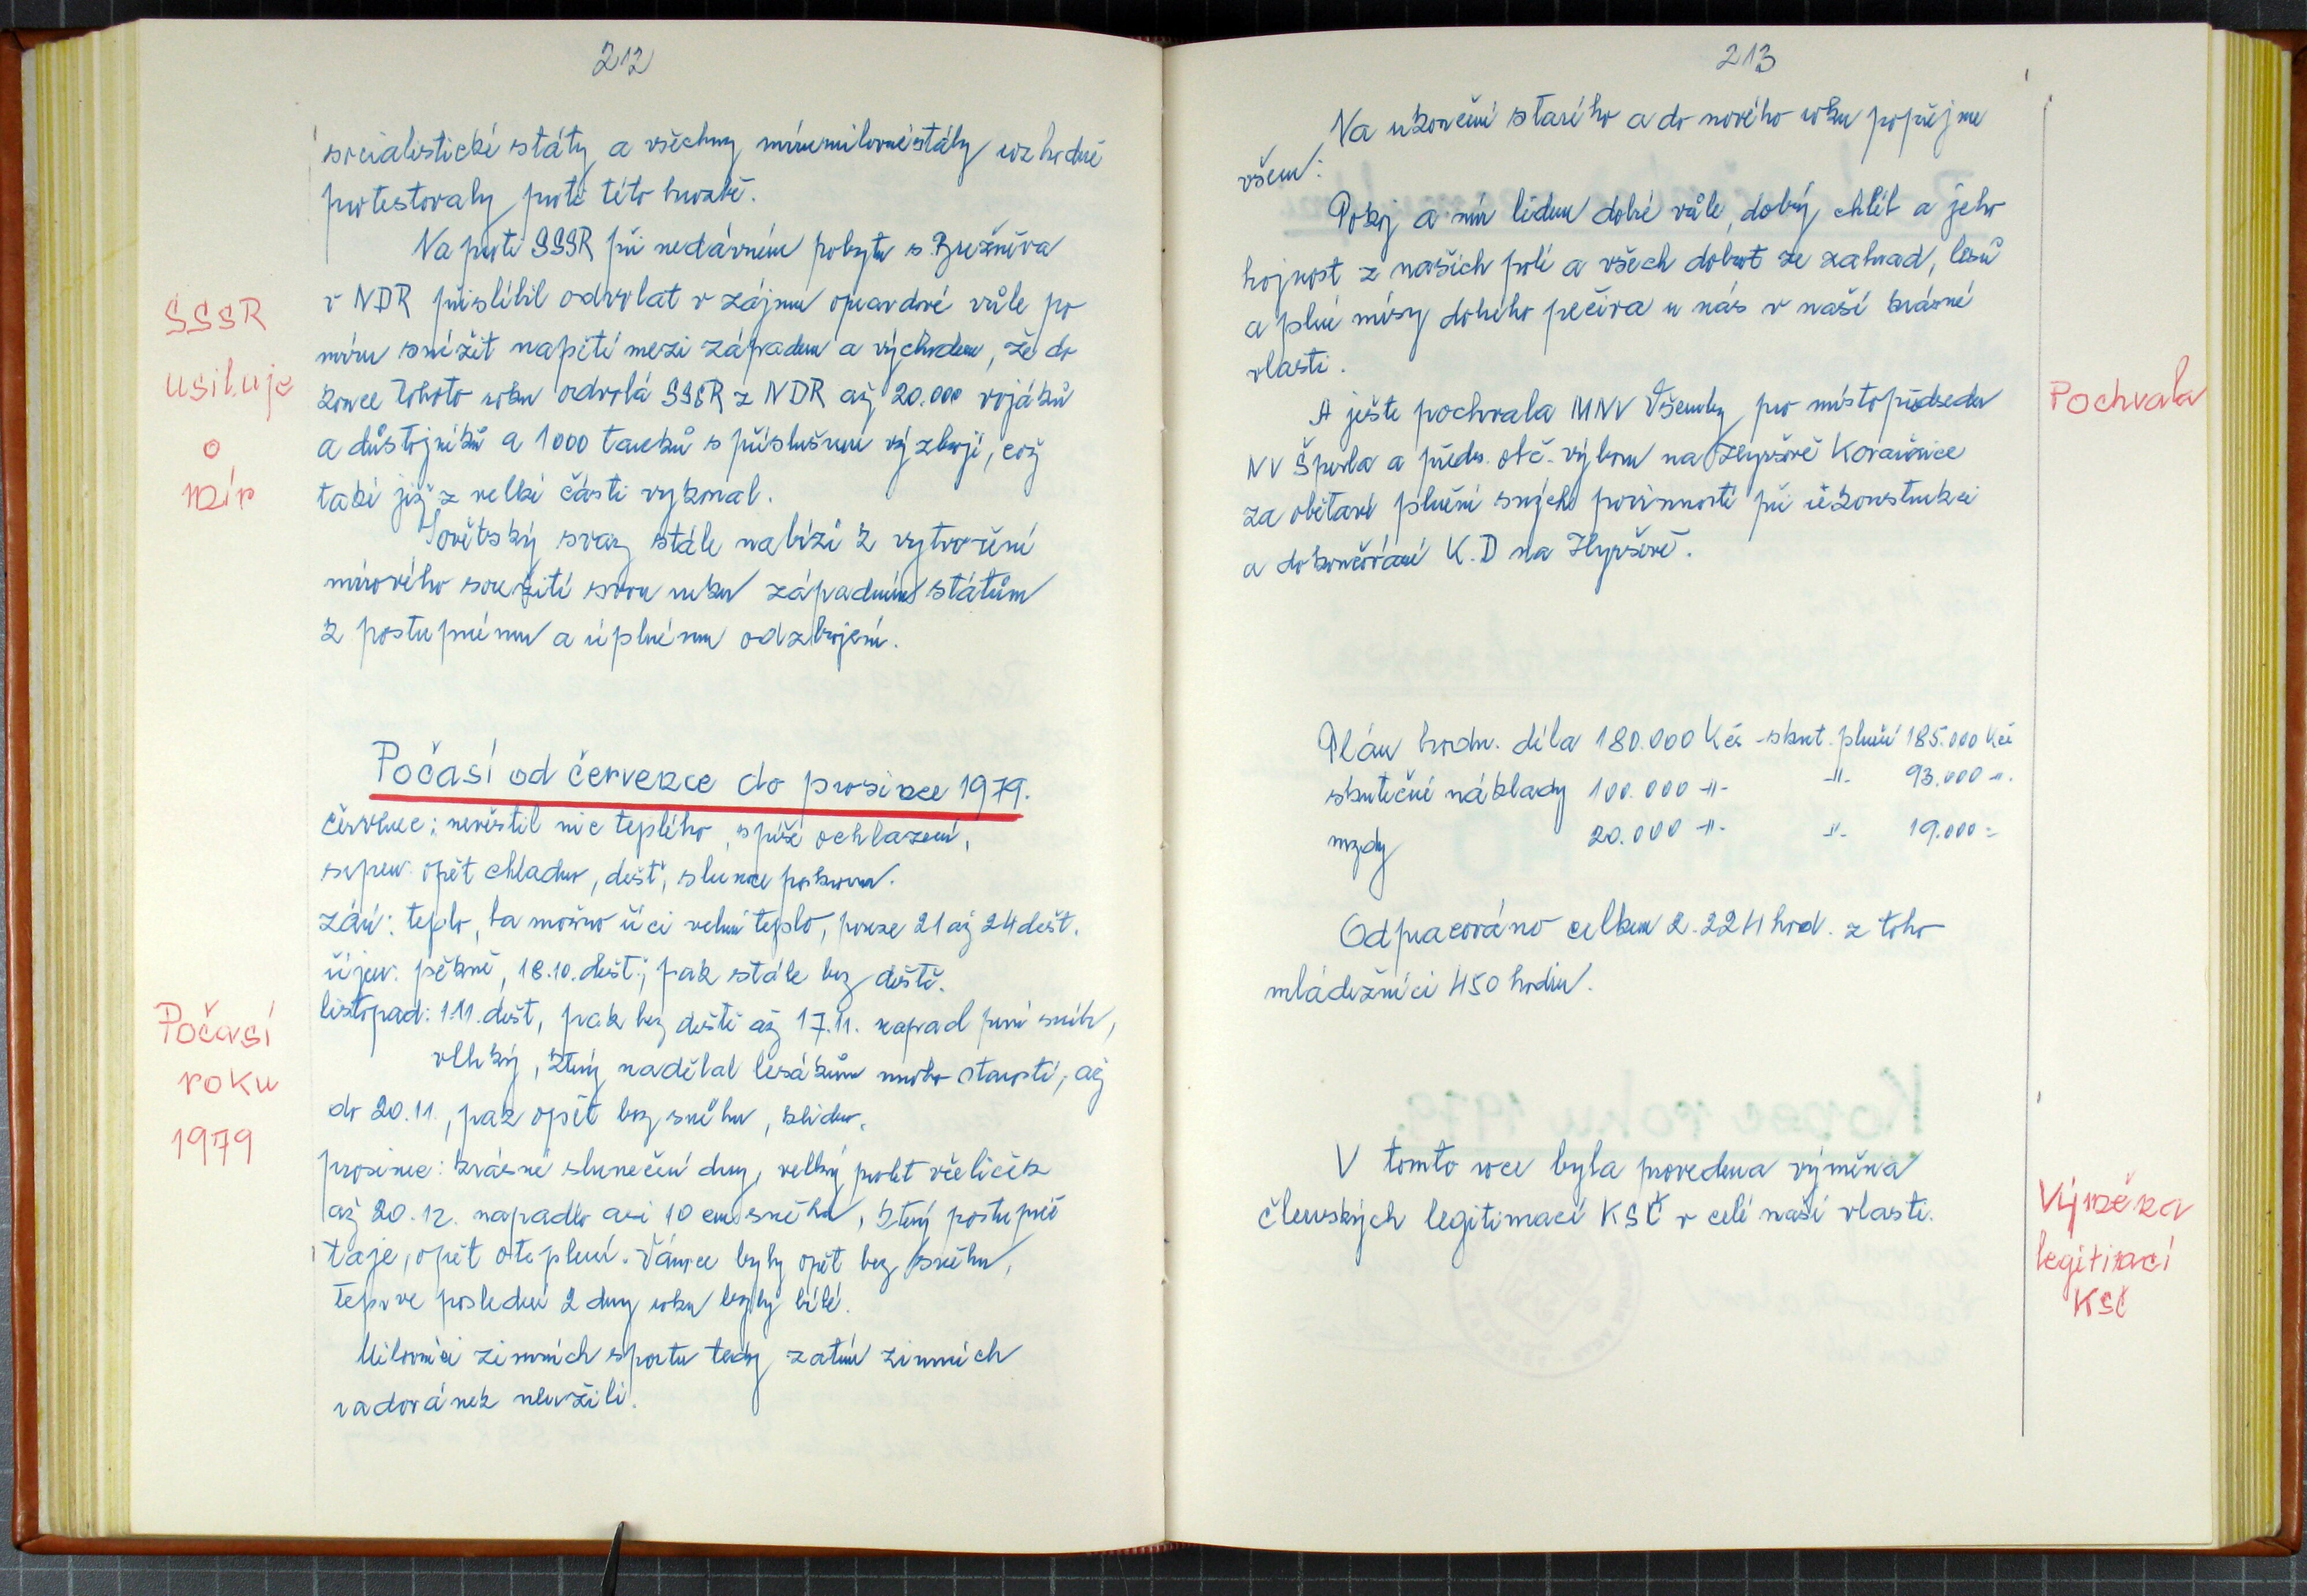 212
socialistické státy a všechny mírumilovné státy rozhodně
protestovaly proti této hrozbě.
Na proti SSSR při nedávném pobytu s. Brežněva
v NDR přislíbil odvolat v zájmu opravdové vůle po
míru snížit napětí mezi západem a východem, že do
konce tohoto roku odvolá SSSR z NDR až 20.000 vojáků
a důstojníků a 1000 tanků s příslušnou výzbrojí, což
také již z velké části vykonal.
Sovětský svaz stále nabízí k vytvoření
mírového soužití svou ruku západním státům
k postupnému a úplnému odzbrojení.
SSSR
usiluje
o
mír
Počasí od července do prosince 1979.
červenec: nevěstil nic teplého, spíše ochlazení,
srpen: opět chladno, déšť, slunce poskrovnu.
září: teplo, ba možno říci velmi teplo, pouze 21 až 24 déšť.
říjen: pěkně, 18.10. déšť; pak stále bez deště.
listopad: 1.11. déšť, pak bez deště až 17.11. napad první sníh,
vlhký, který nadělal lesákům mnoho starostí, až
do 20.11., pak opět bez sněhu, klidno.
prosinec: krásné sluneční dny, velký prolet včeliček
až 20.12. napadlo asi 10 cm sněhu, který postupně
taje, opět oteplení. Vánoce byly opět bez sněhu,
teprve poslední 2 dny roku byly bílé.
Milovníci zimních sportu tedy zatím zimních
radovánek neužili.
Počasí
roku
1979
213
Na ukončení starého a do nového roku popřejme
všem:
Pokoj a mír lidem dobré vůle, dobrý chléb a jeho
hojnost z našich polí a všech dobrot ze zahrad, lesů
a plné mísy dobrého pečiva u nás v naší krásné
vlasti.
A ješte pochvala MNV Všemily pro místopředsedu
NV Šperla a předs. obč. výboru na
za obětavé plnění svých povinností při rekonstrukci
a dokončování K.D na
Pochvala
Plán hodn. díla 180.000 Kčs - skut. plnění 185.000 Kčs
skutečné náklady 100.000 -"- -"- 93.000 -"-
mzdy 20.000 -"- -"- 19.000 =
Odpracováno celkem 2.224 hod. z toho
mládežníci 450 hodin.
V tomto roce byla provedena výměna
členských legitimací KSČ v celé naší vlasti.
Výměna
legitimací
KSČ